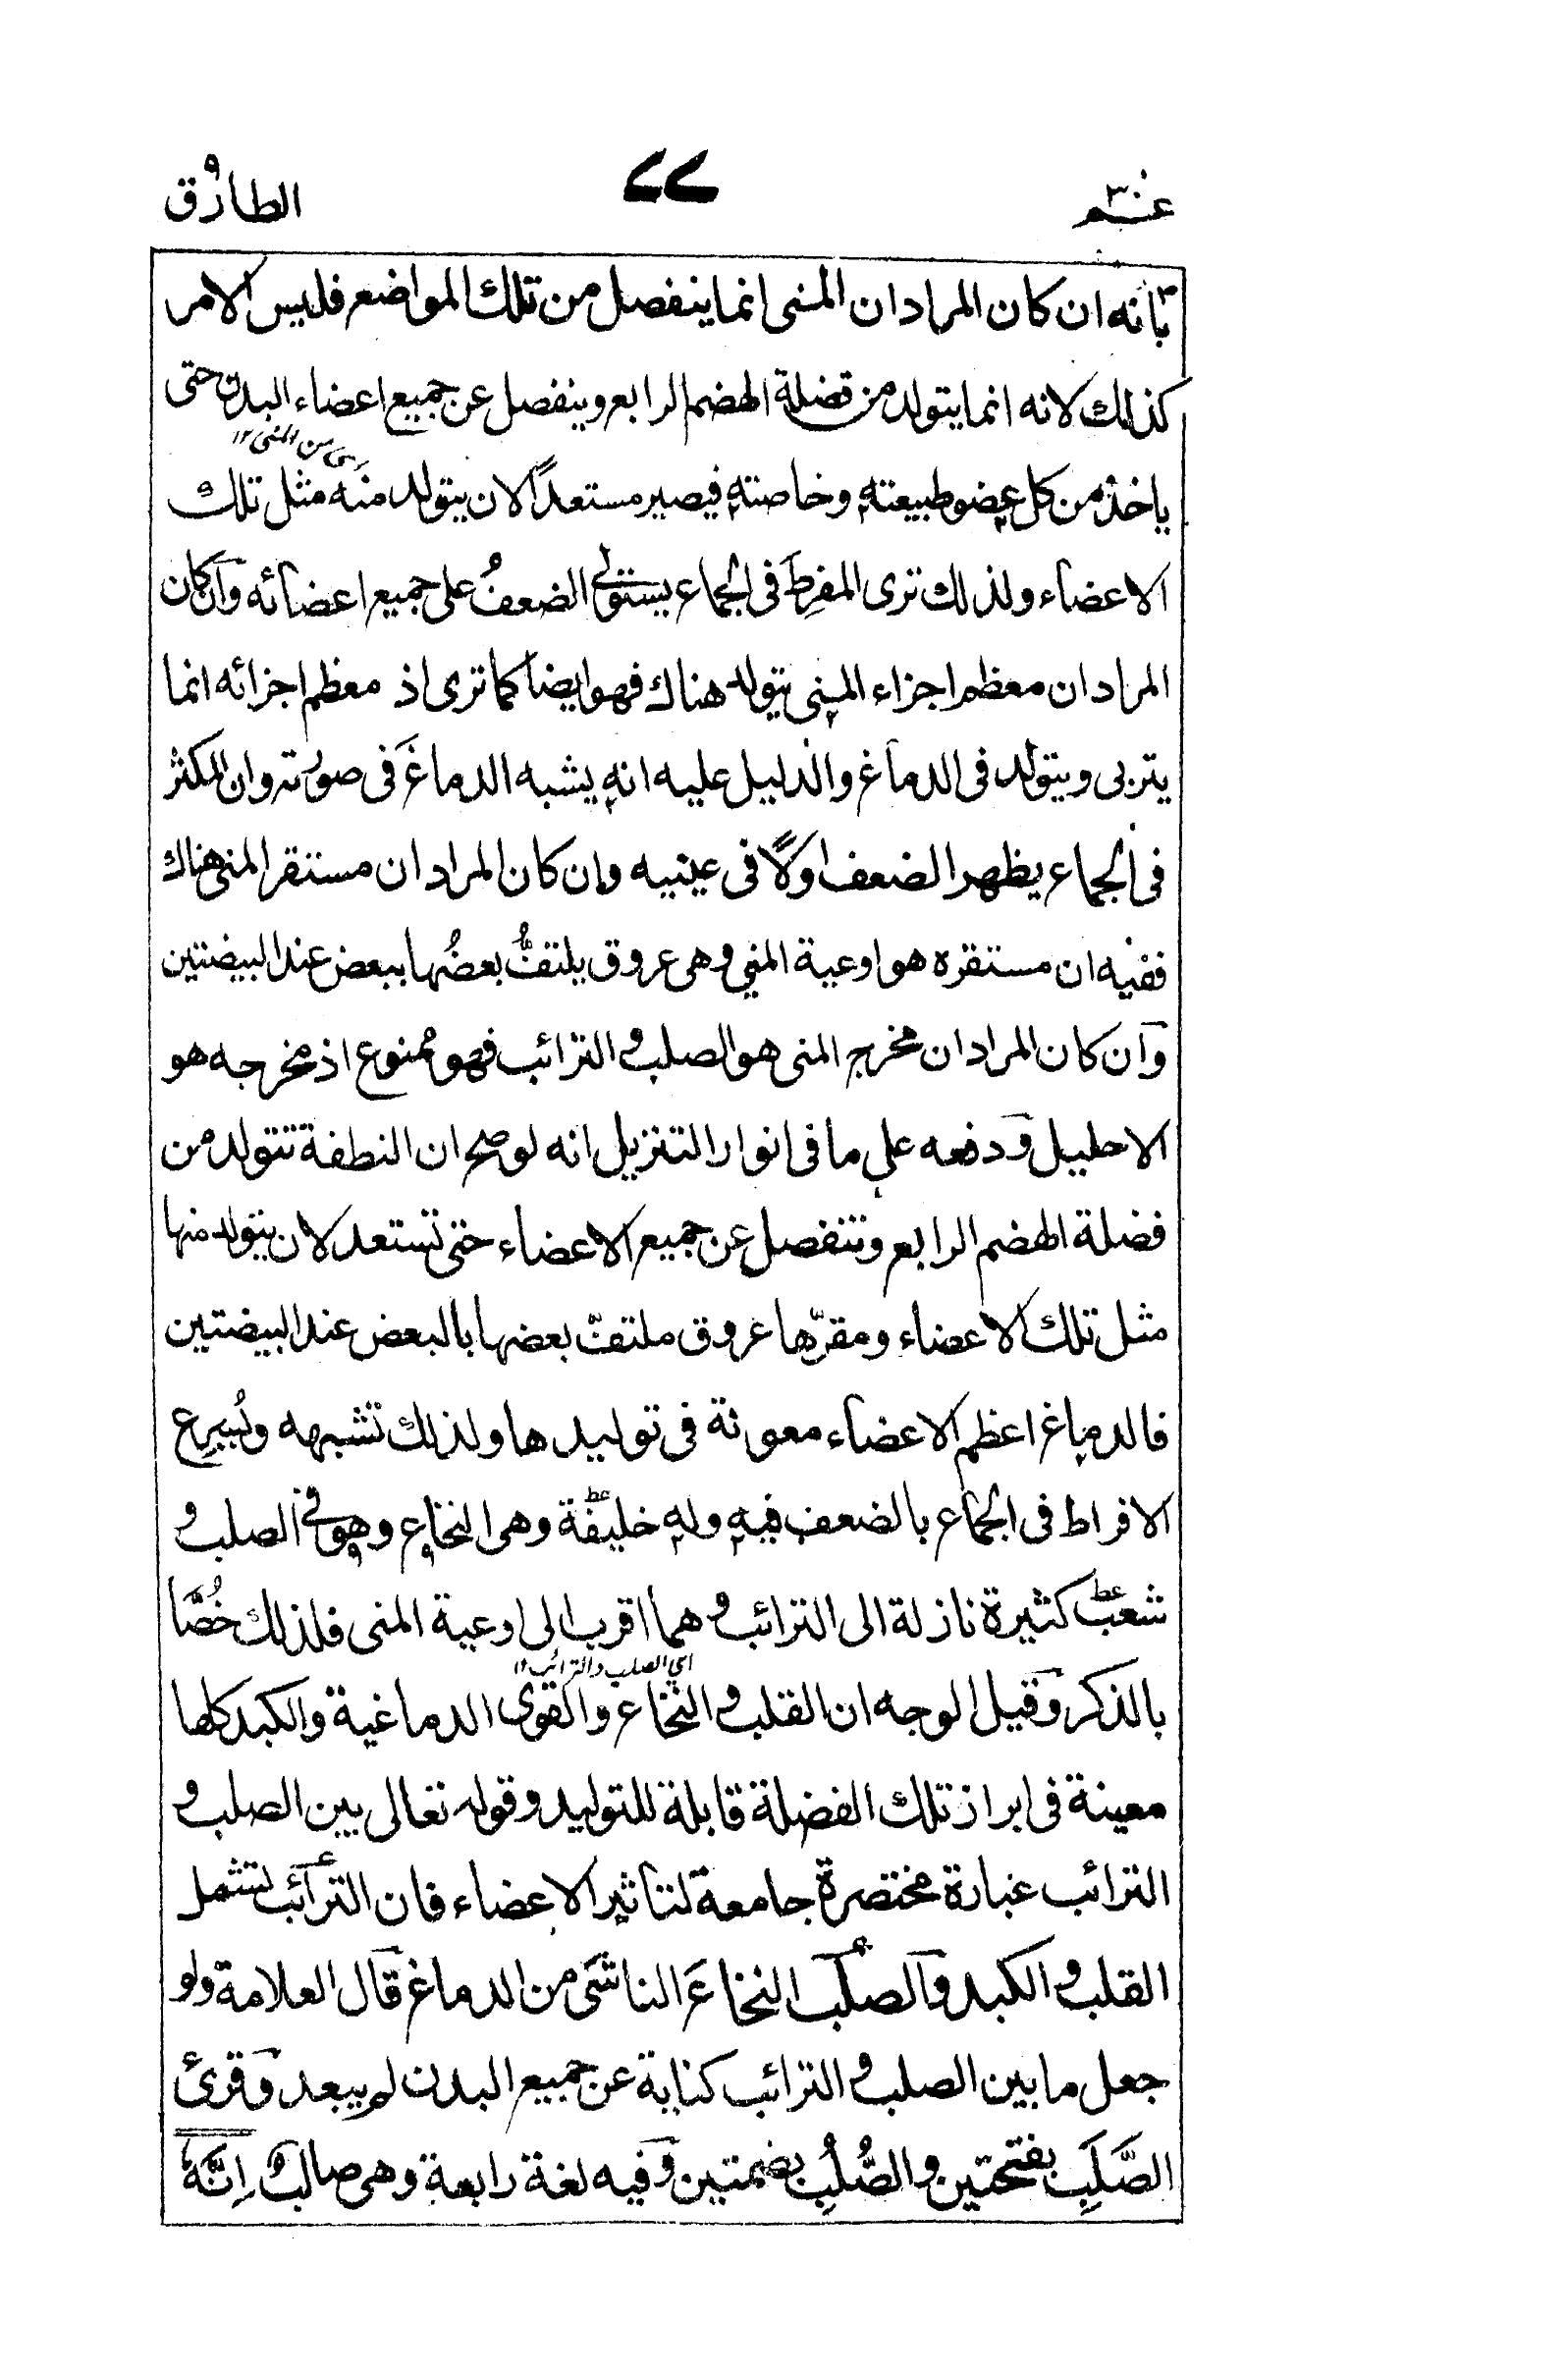 عـ٣٠ـم ٧٧ الطارق
بانه ان كان المراد ان المنى انما ينفصل من تلك المواضع فليس الامر
كذلك لانه انما يتولد من فضلة الهضم الرابع وينفصل عن جميع اعضاء البدن حتى
من المنى ١٢
ياخذ من كل عضو طبيعته وخاصته فيصير مستعدًا لان يتولد منه مثل تلك
الاعضاء ولذلك ترى المفرِط فى الجماع يستولى الضعفُ على جميع اعضائه وان كان
المراد ان معظم اجزاء المنى يتولد هناك فهو ايضا كما ترى اذ معظم اجزائه انما
يتربى ويتولد فى الدماغ والدليل عليه انه يشبه الدماغَ فى صورته وان المكثر
فى الجماع يظهر الضعف اولًا فى عينيه وان كان المراد ان مستقر المنى هناك
ففيه ان مستقره هو اوعية المنى وهى عروق يلتفُّ بعضُها ببعض عند البيضتين
وان كان المراد ان مخرج المنى هو الصلب و الترائب فهو ممنوع اذ مخرجه هو
الاحليل ودفعه على ما فى انوار التنزيل انه لو صح ان النطفة تتولد من
فضلة الهضم الرابع وتنفصل عن جميع الاعضاء حتى تستعد لان يتولد منها
مثل تلك الاعضاء ومقرّها عروق ملتفّ بعضها بالبعض عند البيضتين
فالدماغ اعظم الاعضاء معونة فى توليدها ولذلك تشبهه ويُسرِع
الافراط فى الجماع بالضعف فيه وله خليفة وهى النخاع وهو فى الصلب و
شعبٌ كثيرة نازلة الى الترائب و هما اقرب الى اوعية المنى فلذلك خُصَّا
اى الصلب والترائب ١٢
بالذكر وقيل الوجه ان القلب و النخاع والقوى الدماغية والكبد كلها
معينة فى ابراز تلك الفضلة قابلة للتوليد وقوله تعالى بين الصلب و
الترائب عبارة مختصرة جامعة لتاثير الاعضاء فان الترائب لتشمل
القلب و الكبد والصلب النخاع الناشى من الدماغ قال العلامة ولو
جعل ما بين الصلب و الترائب كناية عن جميع البدن لم يبعد وقرئ
الصَّلَبِ بفتحتين والصُّلُبِ بضمتين وفيه لغة رابعة وهى صالب اِنَّهٗ